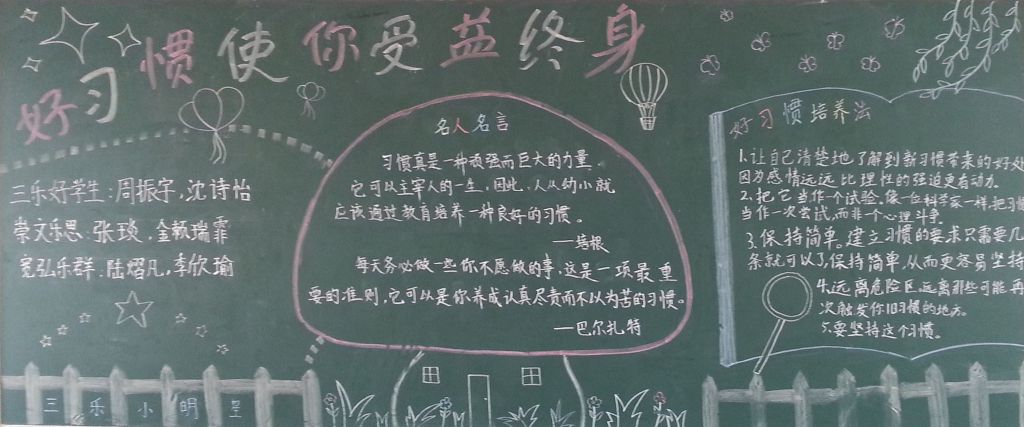 好习惯使你受益终身
三乐好学生:周振宇,沈诗怡
崇文乐思:张琰,金颖瑞霏
宽弘乐群:陆熠凡,李欣瑜
三乐小明星
名人名言
习惯真是一种顽强而巨大的力量。
它可以主宰人的一生,因此,人从幼小就
应该通过教育培养一种良好的习惯。
——培根
每天务必做一些你不愿做的事,这是一项最重
要的准则,它可以是你养成认真尽责而不以为苦的习惯。
——巴尔扎特
好习惯培养法
1.让自己清楚地了解到新习惯带来的好处
因为感情远远比理性的强迫更有动力。
2.把它当作一个试验。像一位科学家一样,把习惯
当作一次尝试,而非一个心理斗争。
3.保持简单。建立习惯的要求只需要几
条就可以了,保持简单,从而更容易坚持
4.远离危险区,远离那些可能再
次触发你旧习惯的地方。
5.要坚持这个习惯。